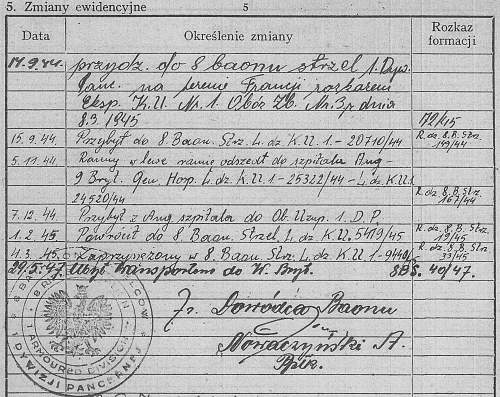 5. Zmiany ewidencyjne 5
Data Określenie zmiany Rozkaz formacji
14.9.44. przydz. do 8 baonu strzel. 1. Dyw.
Panc. na terenie Francji rozkazem
Eksp. K.U. Nr. 1. Obóz Zb. Na. 3 p. dnia
8.3. 1945 172/45
15.9.44. Przybył do 8. Baon. Strz. L. dz. K.U. 1. - 20710/44 R. dz. 8. B. Strz. 149/44
5.11.44. Ranny w lewe ramię odszedł do szpitala Ang -
9 Bryt. Gen. Hosp. L. dz. K.U.1 - 25322/44 - L. dz. K.U.1
24520/44 R. dz. 8. B. Strz. 167/44
7.12.44. Przybył z Ang. szpitala do Ob. Uzup. 1. D. P.
1.2.45 Powrócił do 8. Baon. Strzel. L. dz. K.U. 5419/45 R. dz. 8. B. Strz. 19/45
4.3.45. Zaprzysężony w 8. Baon. Strz. L. dz. K.U. 1- R. dz. 8. B. Strz. 33/45
29.5.47. Ubył transportem do W. Bryt. 8BS. 40/47.
Dowódca Baonu
Nowaczyński A.
Ppłk.
1 ARMOURED DIVISION
1 DYWIZJI PANCERNEJ